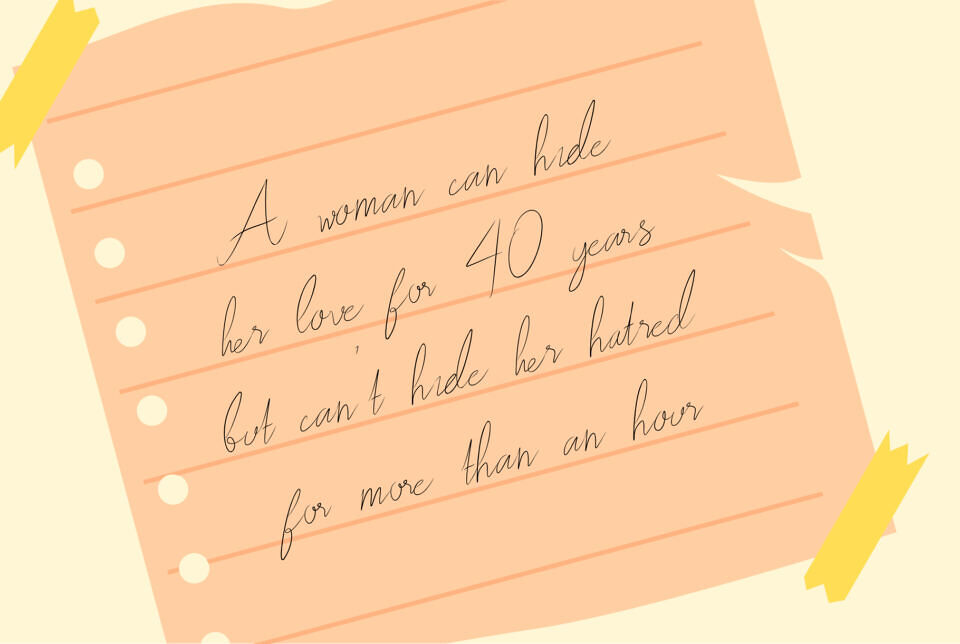 A woman can hide
her love for 40 years
but can't hide her hatred
for more than an hour